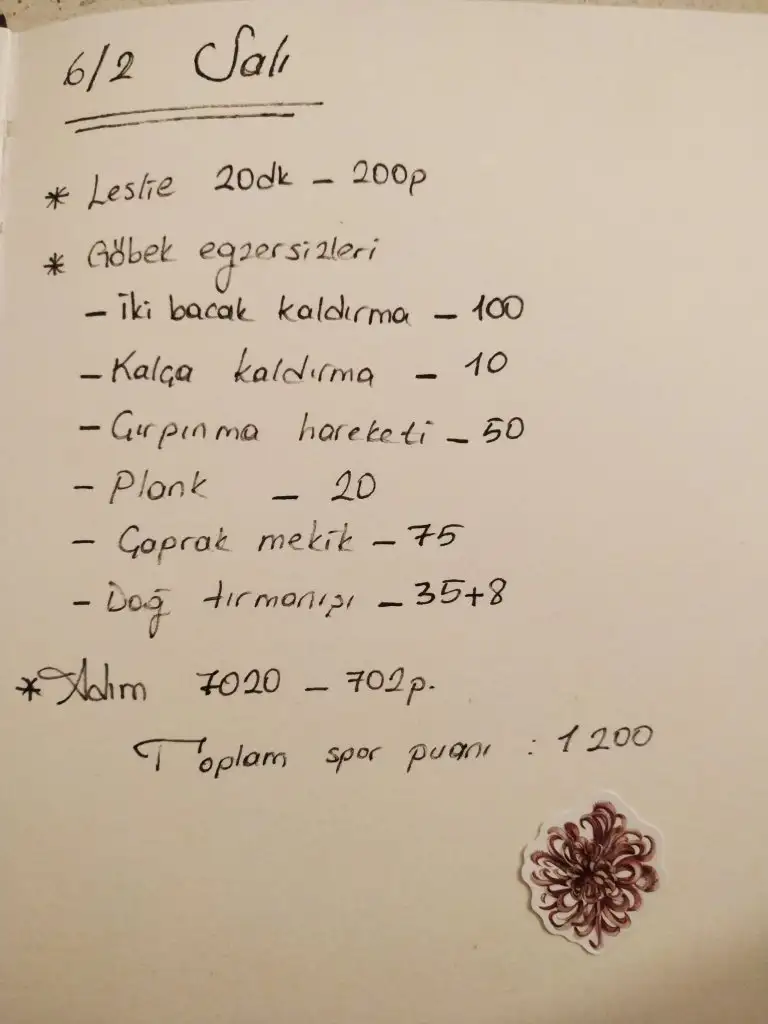 6/2 Salı
* Leslie 20dk - 200p
* Göbek egzersizleri
- İki bacak kaldırma - 100
- Kalça kaldırma - 10
- Çırpınma hareketi - 50
- Plank - 20
- Çapraz mekik - 75
- Dağ tırmanışı - 35+8
* Adım 7020 - 702p.
Toplam spor puanı : 1200